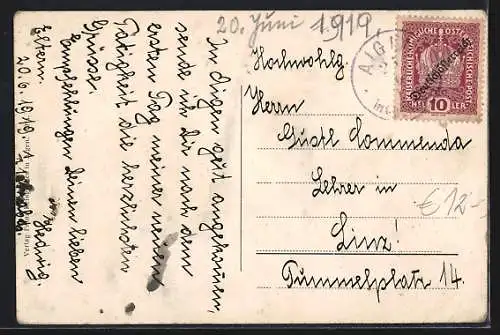 20. Juni 1919.
In Aigen gut angekommen,
sende ich dir nach dem
ersten Tag meiner neuen
Tätigkeit die herzlichsten
Grüsse.
Empfehlungen deinen lieben
Eltern.
Hedwig.
20. 6. 1919.
Verlag
KAISERLICHE KÖNIGLICHE ÖSTERREICHISCHE POST
Deutschösterreich
10
HELLER
AIG
Hochwohlg.
Herrn
Gustl Commenda
Lehrer in
Linz!
Tummelplatz 14.
€ 12-